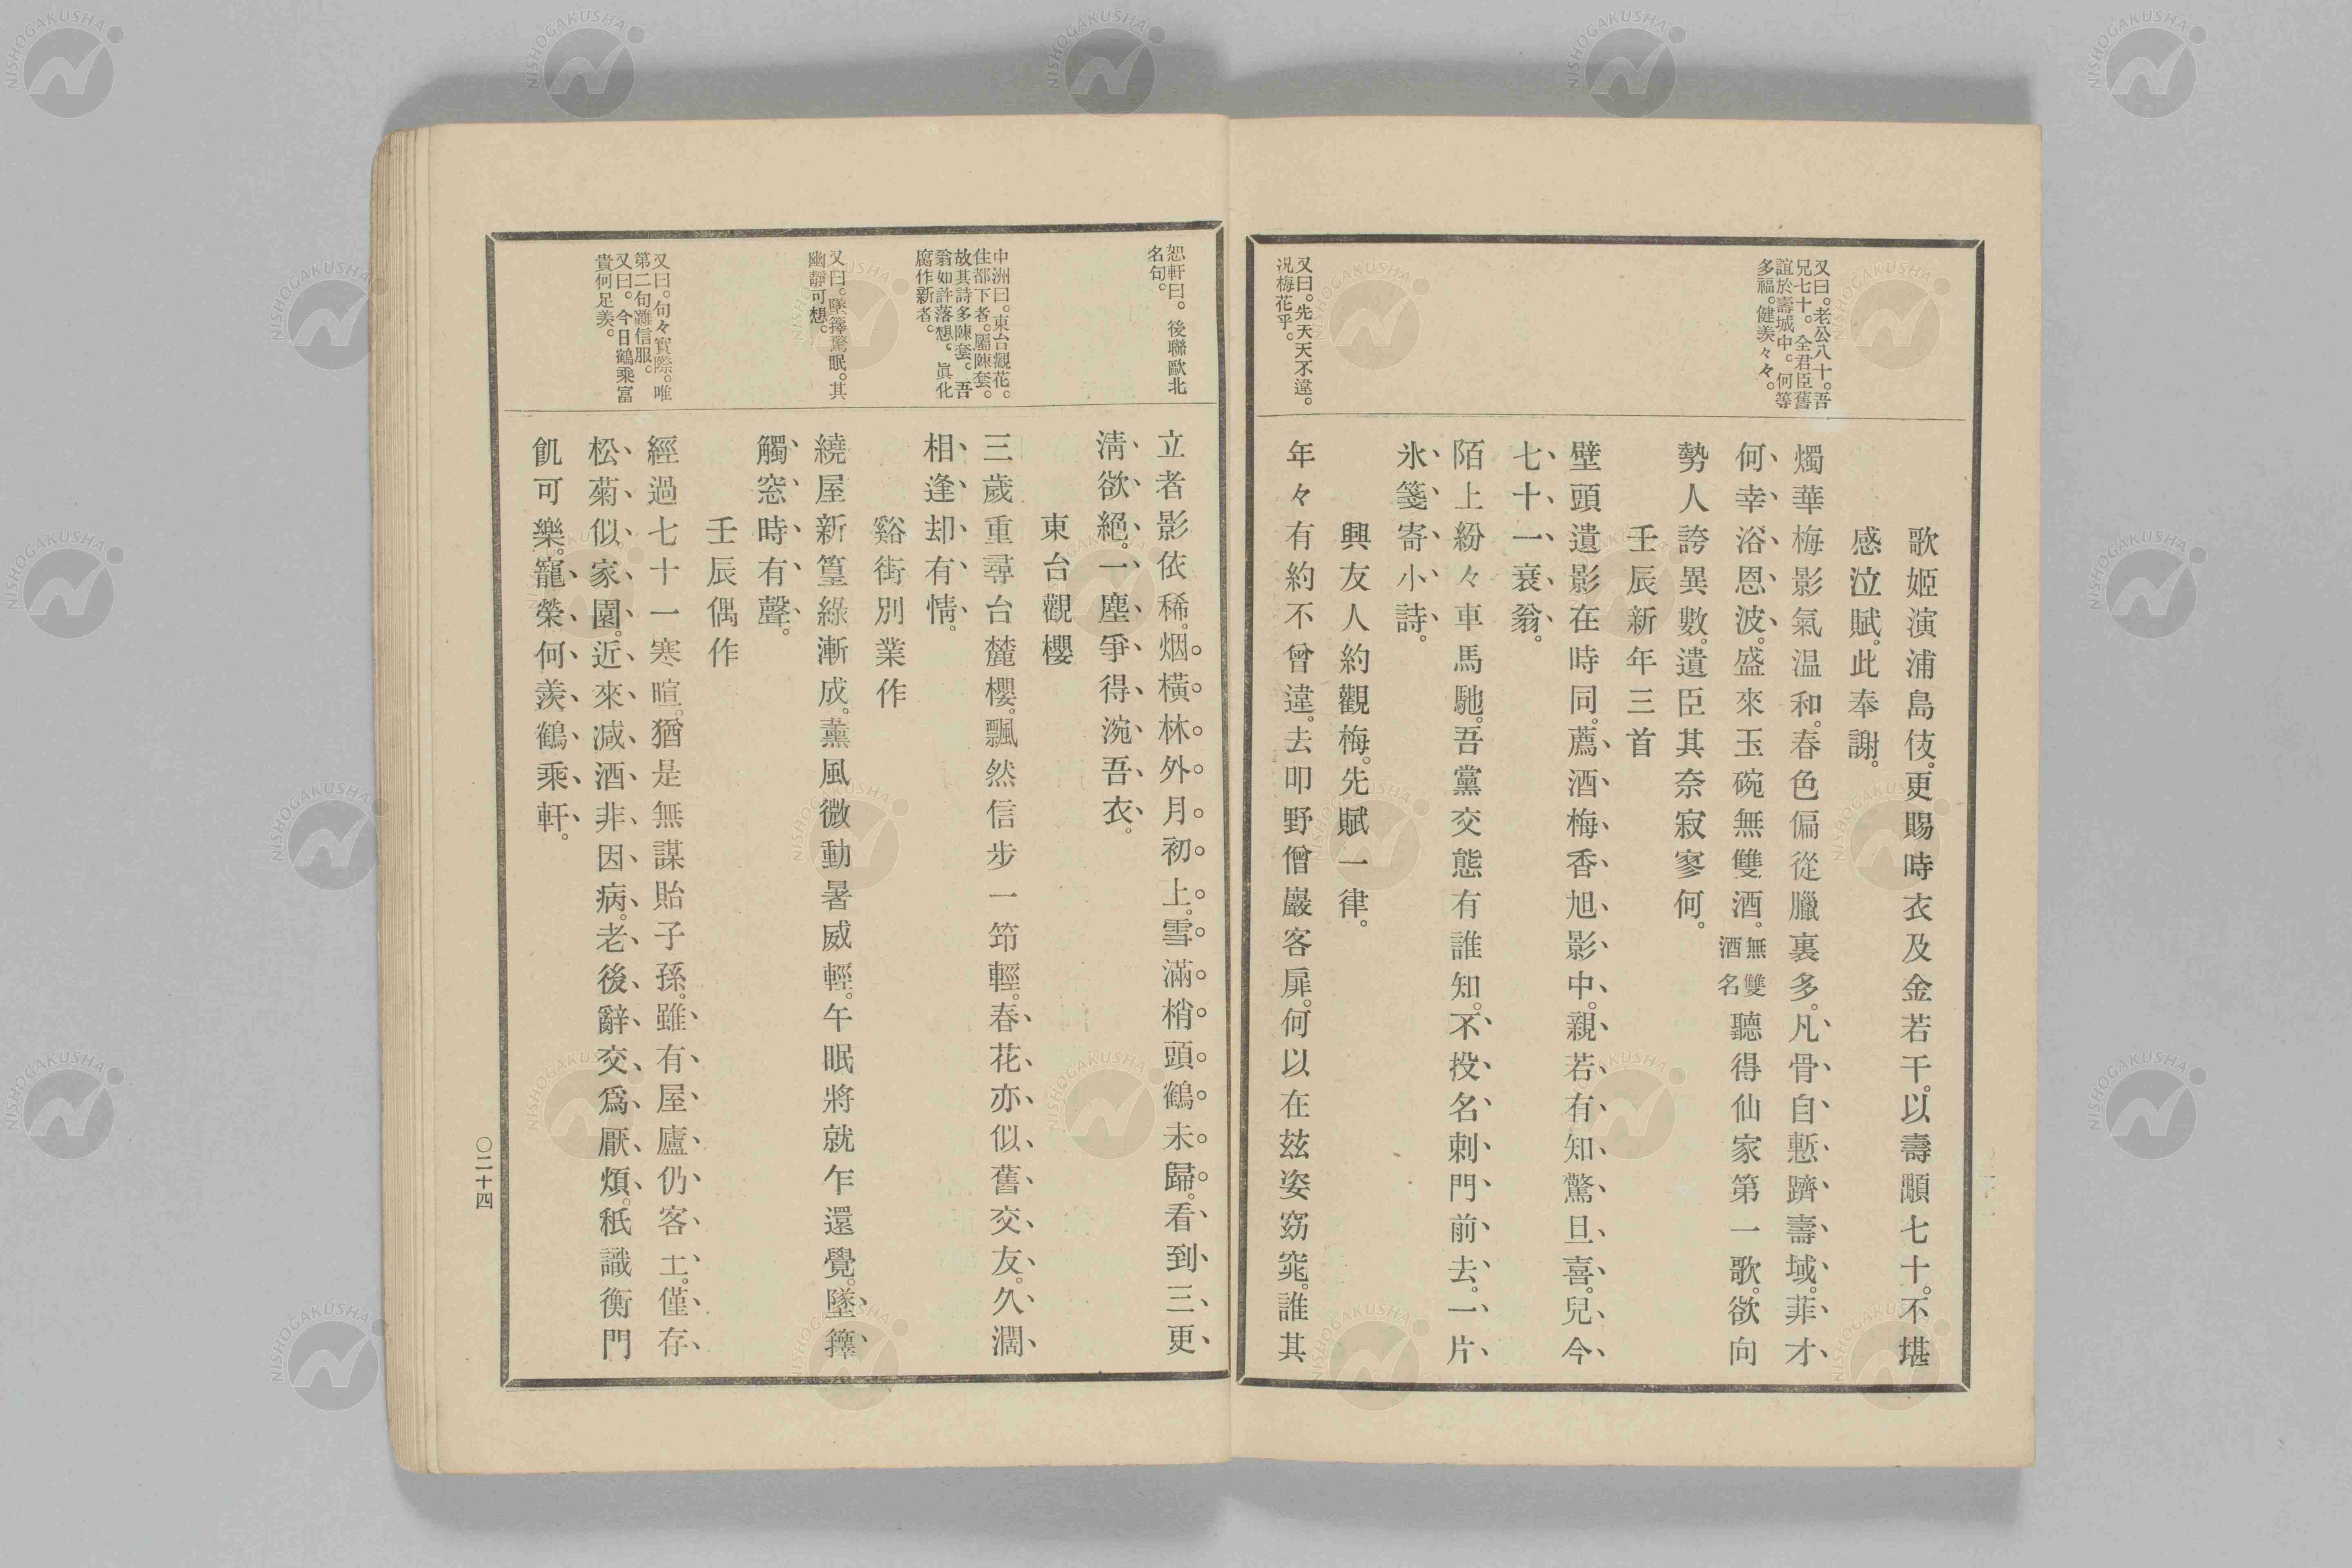 又曰。老公八十。吾
兄七十。全君臣舊
誼於壽城中。何等
多福。健羨々々。
又曰。先天天不違。
况梅花乎。
歌姬演浦島伎。更賜時衣及金若干。以壽顒七十。不堪
感泣賦。此奉謝。
燭華梅影氣温和。春色偏從臘裏多。凡骨自慙躋壽域。菲才
何幸浴恩波。盛來玉碗無雙酒。無雙酒名聽得仙家第一歌。欲向
勢人誇異數。遺臣其奈寂寥何。
壬辰新年三首
壁頭遺影在時同。薦酒梅香旭影中。親若有知驚旦喜。兒今
七十一衰翁。
陌上紛々車馬馳。吾黨交態有誰知。不投名刺門前去。一片
氷箋寄小詩。
興友人約觀梅。先賦一律。
年々有約不曾違。去叩野僧巖客扉。何以在玆姿窈窕。誰其
恕軒曰。後聯歐北
名句。
中洲曰。東台觀花。
住都下者。屬陳套。
故其詩多陳套。吾
翁如許落想。眞化
腐作新者。
又曰。墜籜驚眠。其
幽靜可想。
又曰。句々實際。唯
第二句難信服。
又曰。今日鶴乘富
貴何足羨。
立者影依稀。烟橫林外月初上。雪滿梢頭鶴未歸。看到三更
淸欲絕。一塵爭得涴吾衣。
東台觀櫻
三歲重尋台麓櫻。飄然信步一筇輕。春花亦似舊交友。久濶
相逢却有情。
谿街別業作
繞屋新篁綠漸成。薰風微動暑威輕。午眠將就乍還覺。墜籜
觸窓時有聲。
壬辰偶作
經過七十一寒暄。猶是無謀貽子孫。雖有屋廬仍客土。僅存
松菊似家園。近來減酒非因病。老後辭交爲厭煩。秪識衡門
飢可樂。寵榮何羨鶴乘軒。
〇二十四
NISHOGAKUSHA